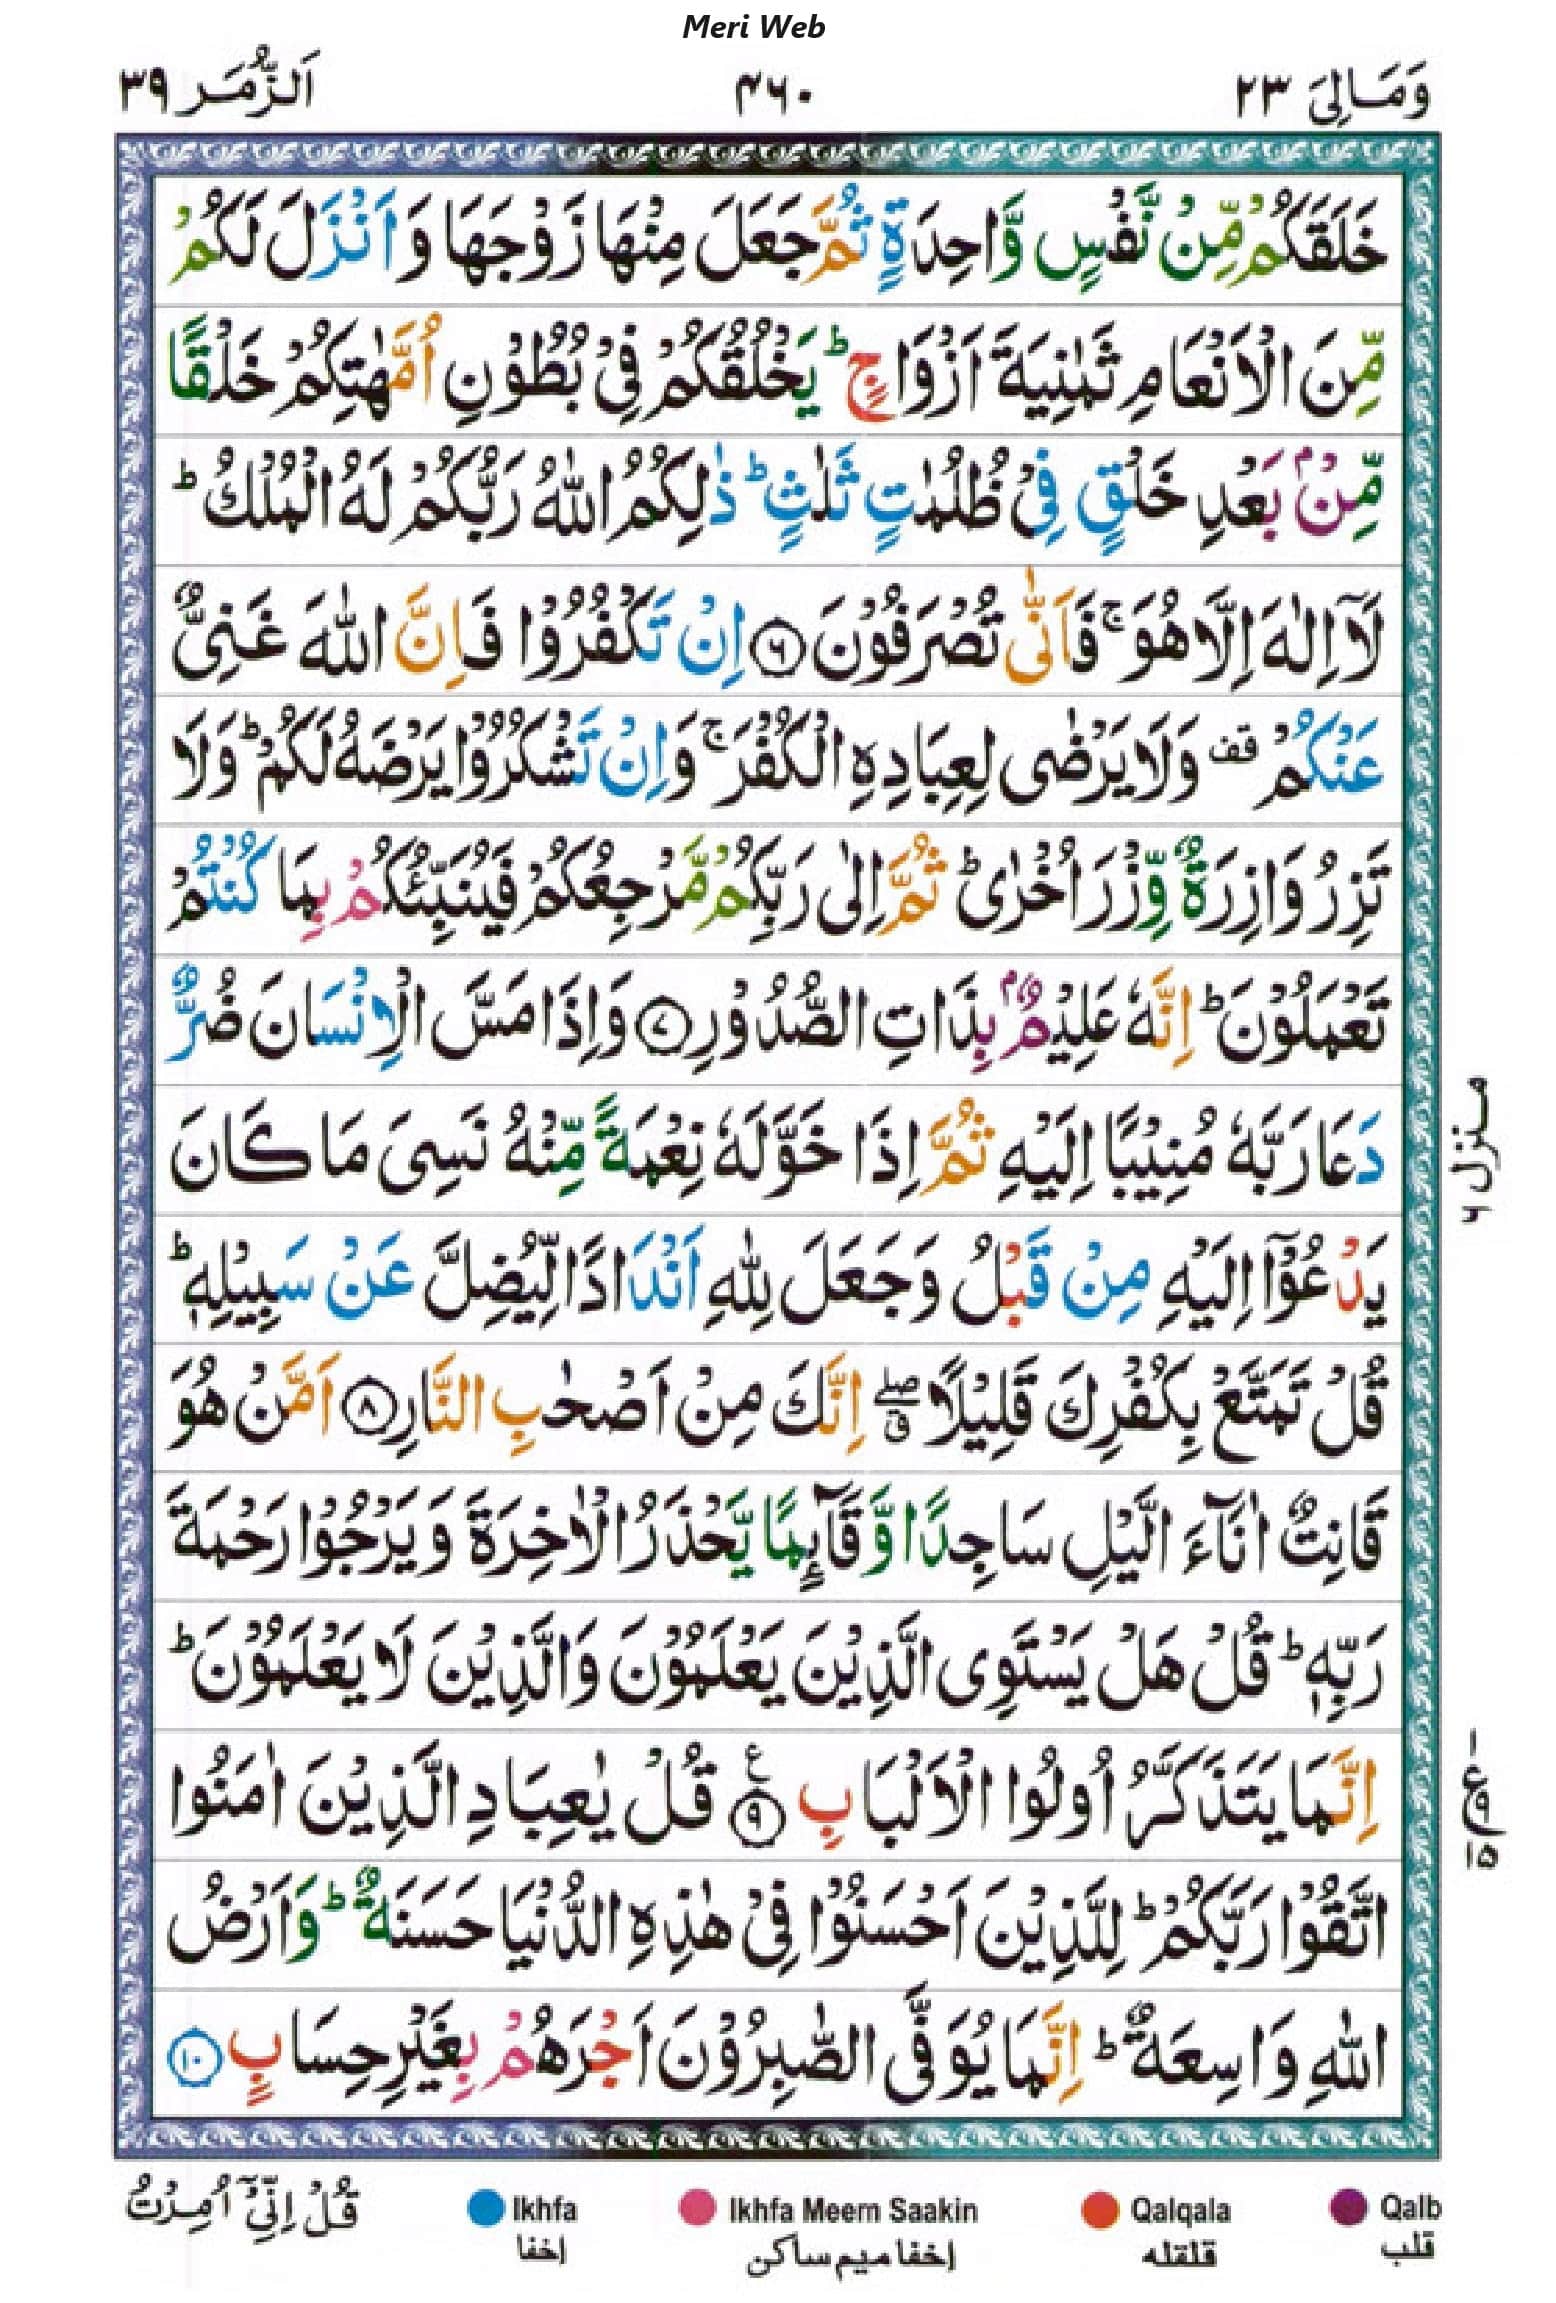 Meri Web
وَمَالِیَ ٢٣
۴۶۰
اَلزُّمَر ٣٩
خَلَقَكُمْ مِّنْ نَّفْسٍ وَّاحِدَةٍ ثُمَّ جَعَلَ مِنْهَا زَوْجَهَا وَ اَنْزَلَ لَكُمْ
مِّنَ الْاَنْعَامِ ثَمٰنِيَةَ اَزْوَاجٍ ؕ يَخْلُقُكُمْ فِىْ بُطُوْنِ اُمَّهٰتِكُمْ خَلْقًا
مِّنْۢ بَعْدِ خَلْقٍ فِىْ ظُلُمٰتٍ ثَلٰثٍ ؕ ذٰلِكُمُ اللّٰهُ رَبُّكُمْ لَهُ الْمُلْكُ ؕ
لَاۤ اِلٰهَ اِلَّا هُوَ ۚ فَاَنّٰى تُصْرَفُوْنَ ۶ اِنْ تَكْفُرُوْا فَاِنَّ اللّٰهَ غَنِىٌّ
عَنْكُمْ قف وَلَا يَرْضٰى لِعِبَادِهِ الْكُفْرَ ۚ وَاِنْ تَشْكُرُوْا يَرْضَهُ لَكُمْ ؕ وَلَا
تَزِرُ وَازِرَةٌ وِّزْرَ اُخْرٰى ؕ ثُمَّ اِلٰى رَبِّكُمْ مَّرْجِعُكُمْ فَيُنَبِّئُكُمْ بِمَا كُنْتُمْ
تَعْمَلُوْنَ ؕ اِنَّهٗ عَلِيْمٌۢ بِذَاتِ الصُّدُوْرِ ۷ وَاِذَا مَسَّ الْاِنْسَانَ ضُرٌّ
دَعَا رَبَّهٗ مُنِيْبًا اِلَيْهِ ثُمَّ اِذَا خَوَّلَهٗ نِعْمَةً مِّنْهُ نَسِىَ مَا كَانَ
يَدْعُوْۤا اِلَيْهِ مِنْ قَبْلُ وَجَعَلَ لِلّٰهِ اَنْدَادًا لِّيُضِلَّ عَنْ سَبِيْلِهٖ ؕ
قُلْ تَمَتَّعْ بِكُفْرِكَ قَلِيْلًا ۖ ق اِنَّكَ مِنْ اَصْحٰبِ النَّارِ ۸ اَمَّنْ هُوَ
قَانِتٌ اٰنَآءَ الَّيْلِ سَاجِدًا وَّقَآئِمًا يَّحْذَرُ الْاٰخِرَةَ وَيَرْجُوْا رَحْمَةَ
رَبِّهٖ ؕ قُلْ هَلْ يَسْتَوِى الَّذِيْنَ يَعْلَمُوْنَ وَالَّذِيْنَ لَا يَعْلَمُوْنَ ؕ
اِنَّمَا يَتَذَكَّرُ اُولُوا الْاَلْبَابِ ۹ ع قُلْ يٰعِبَادِ الَّذِيْنَ اٰمَنُوا
اتَّقُوْا رَبَّكُمْ ؕ لِلَّذِيْنَ اَحْسَنُوْا فِىْ هٰذِهِ الدُّنْيَا حَسَنَةٌ ؕ وَاَرْضُ
اللّٰهِ وَاسِعَةٌ ؕ اِنَّمَا يُوَفَّى الصّٰبِرُوْنَ اَجْرَهُمْ بِغَيْرِ حِسَابٍ ۱۰
منزل ۶
١
ع ٩
١٥
قُلْ اِنِّىْۤ اُمِرْتُ
Ikhfa
اخفا
Ikhfa Meem Saakin
اخفا میم ساکن
Qalqala
قلقله
Qalb
قلب